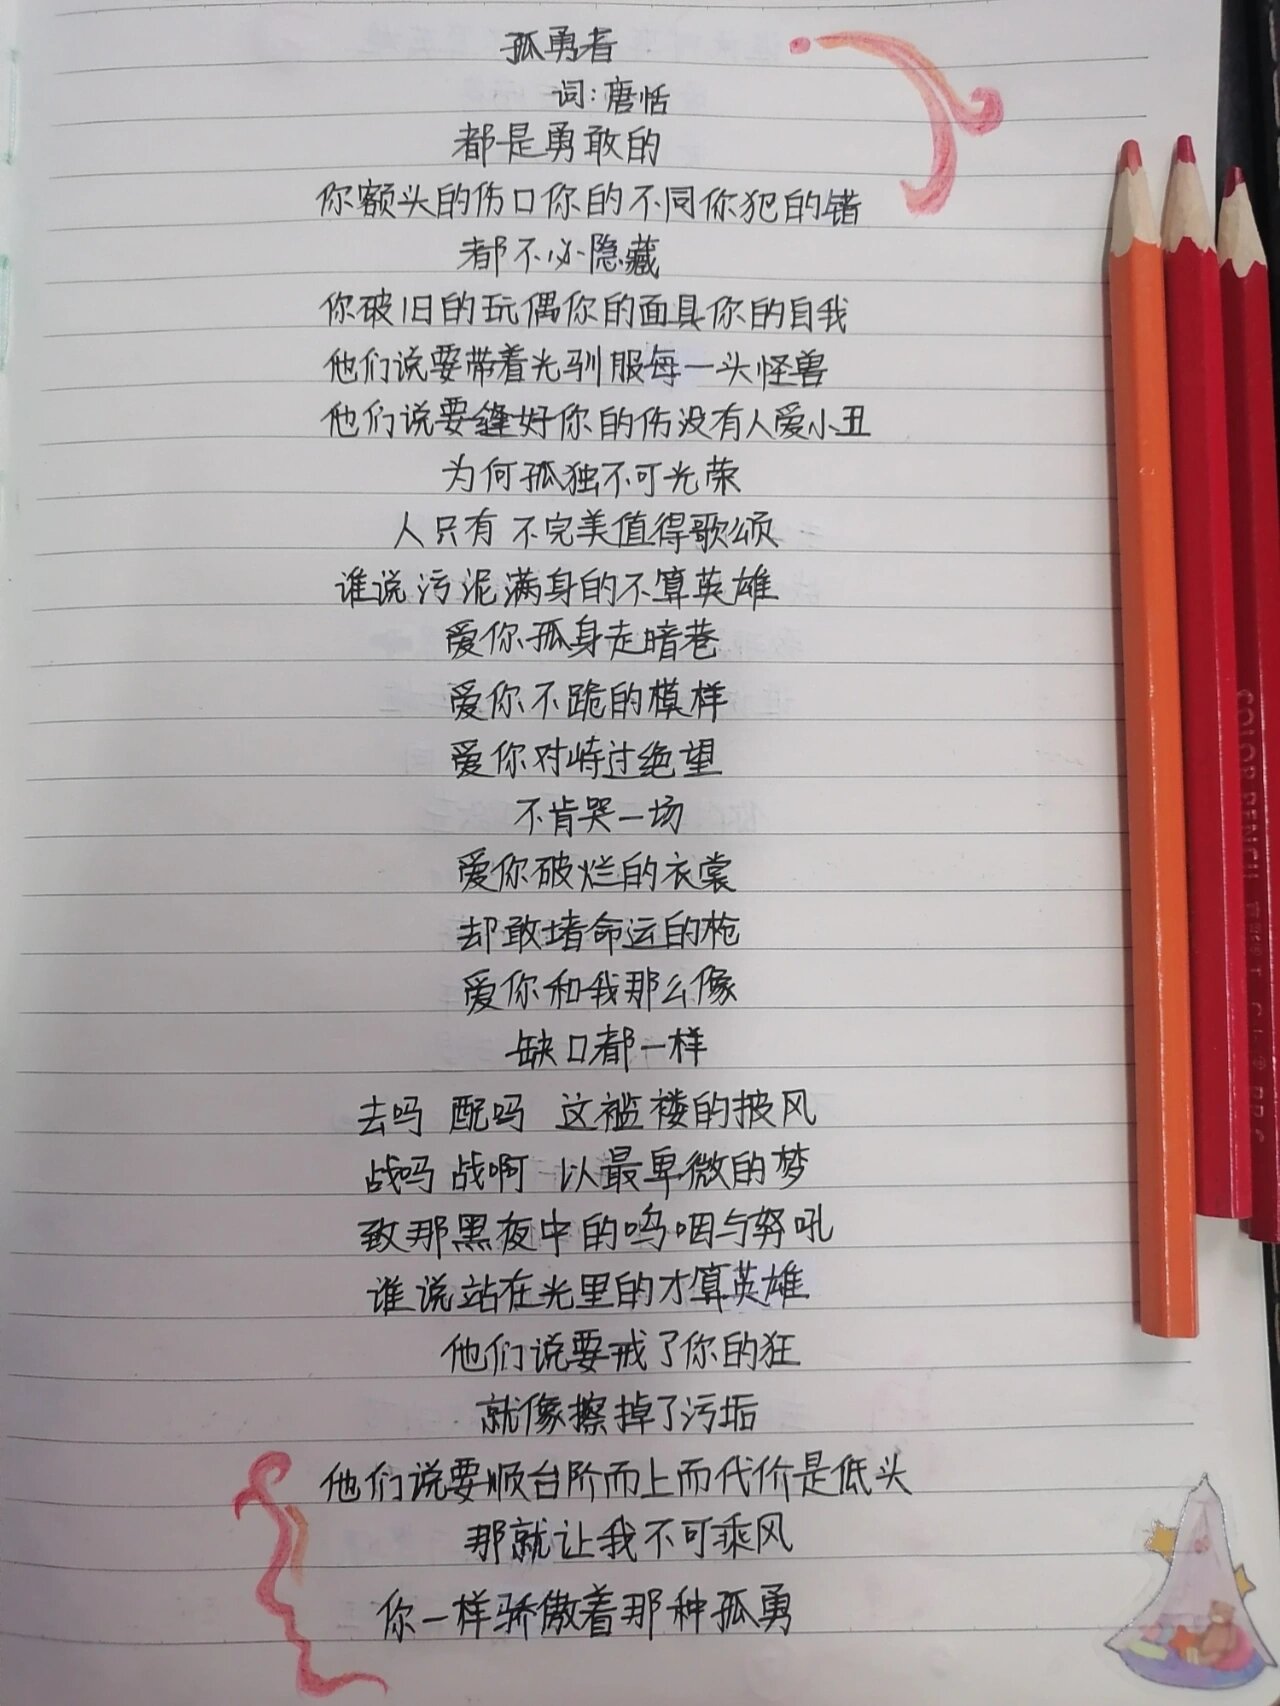 孤勇者
词:唐恬
都是勇敢的
你额头的伤口你的不同你犯的错
都不必隐藏
你破旧的玩偶你的面具你的自我
他们说要带着光驯服每一头怪兽
他们说要缝好你的伤没有人爱小丑
为何孤独不可光荣
人只有 不完美值得歌颂
谁说污泥满身的不算英雄
爱你孤身走暗巷
爱你不跪的模样
爱你对峙过绝望
不肯哭一场
爱你破烂的衣裳
却敢堵命运的枪
爱你和我那么像
缺口都一样
去吗 配吗 这褴褛的披风
战吗 战啊 以最卑微的梦
致那黑夜中的呜咽与努吼
谁说站在光里的才算英雄
他们说要戒了你的狂
就像擦掉了污垢
他们说要顺台阶而上而代价是低头
那就让我不可乘风
你一样骄傲着那种孤勇
COLOR PENCIL